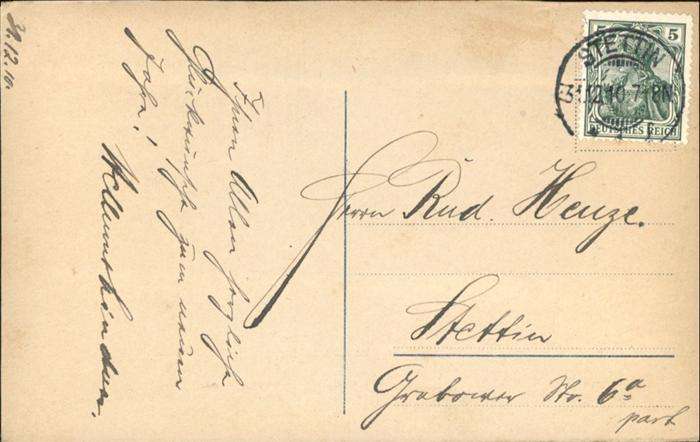 31.12.10.
Ihnen Allen herzliche
Glückwünsche zum neuen
Jahre!
5 5
STETTIN
31.12.10.7-8N
DEUTSCHES REICH
Herrn Rud. Henze.
Stettin
Grabower Str. 6a
part